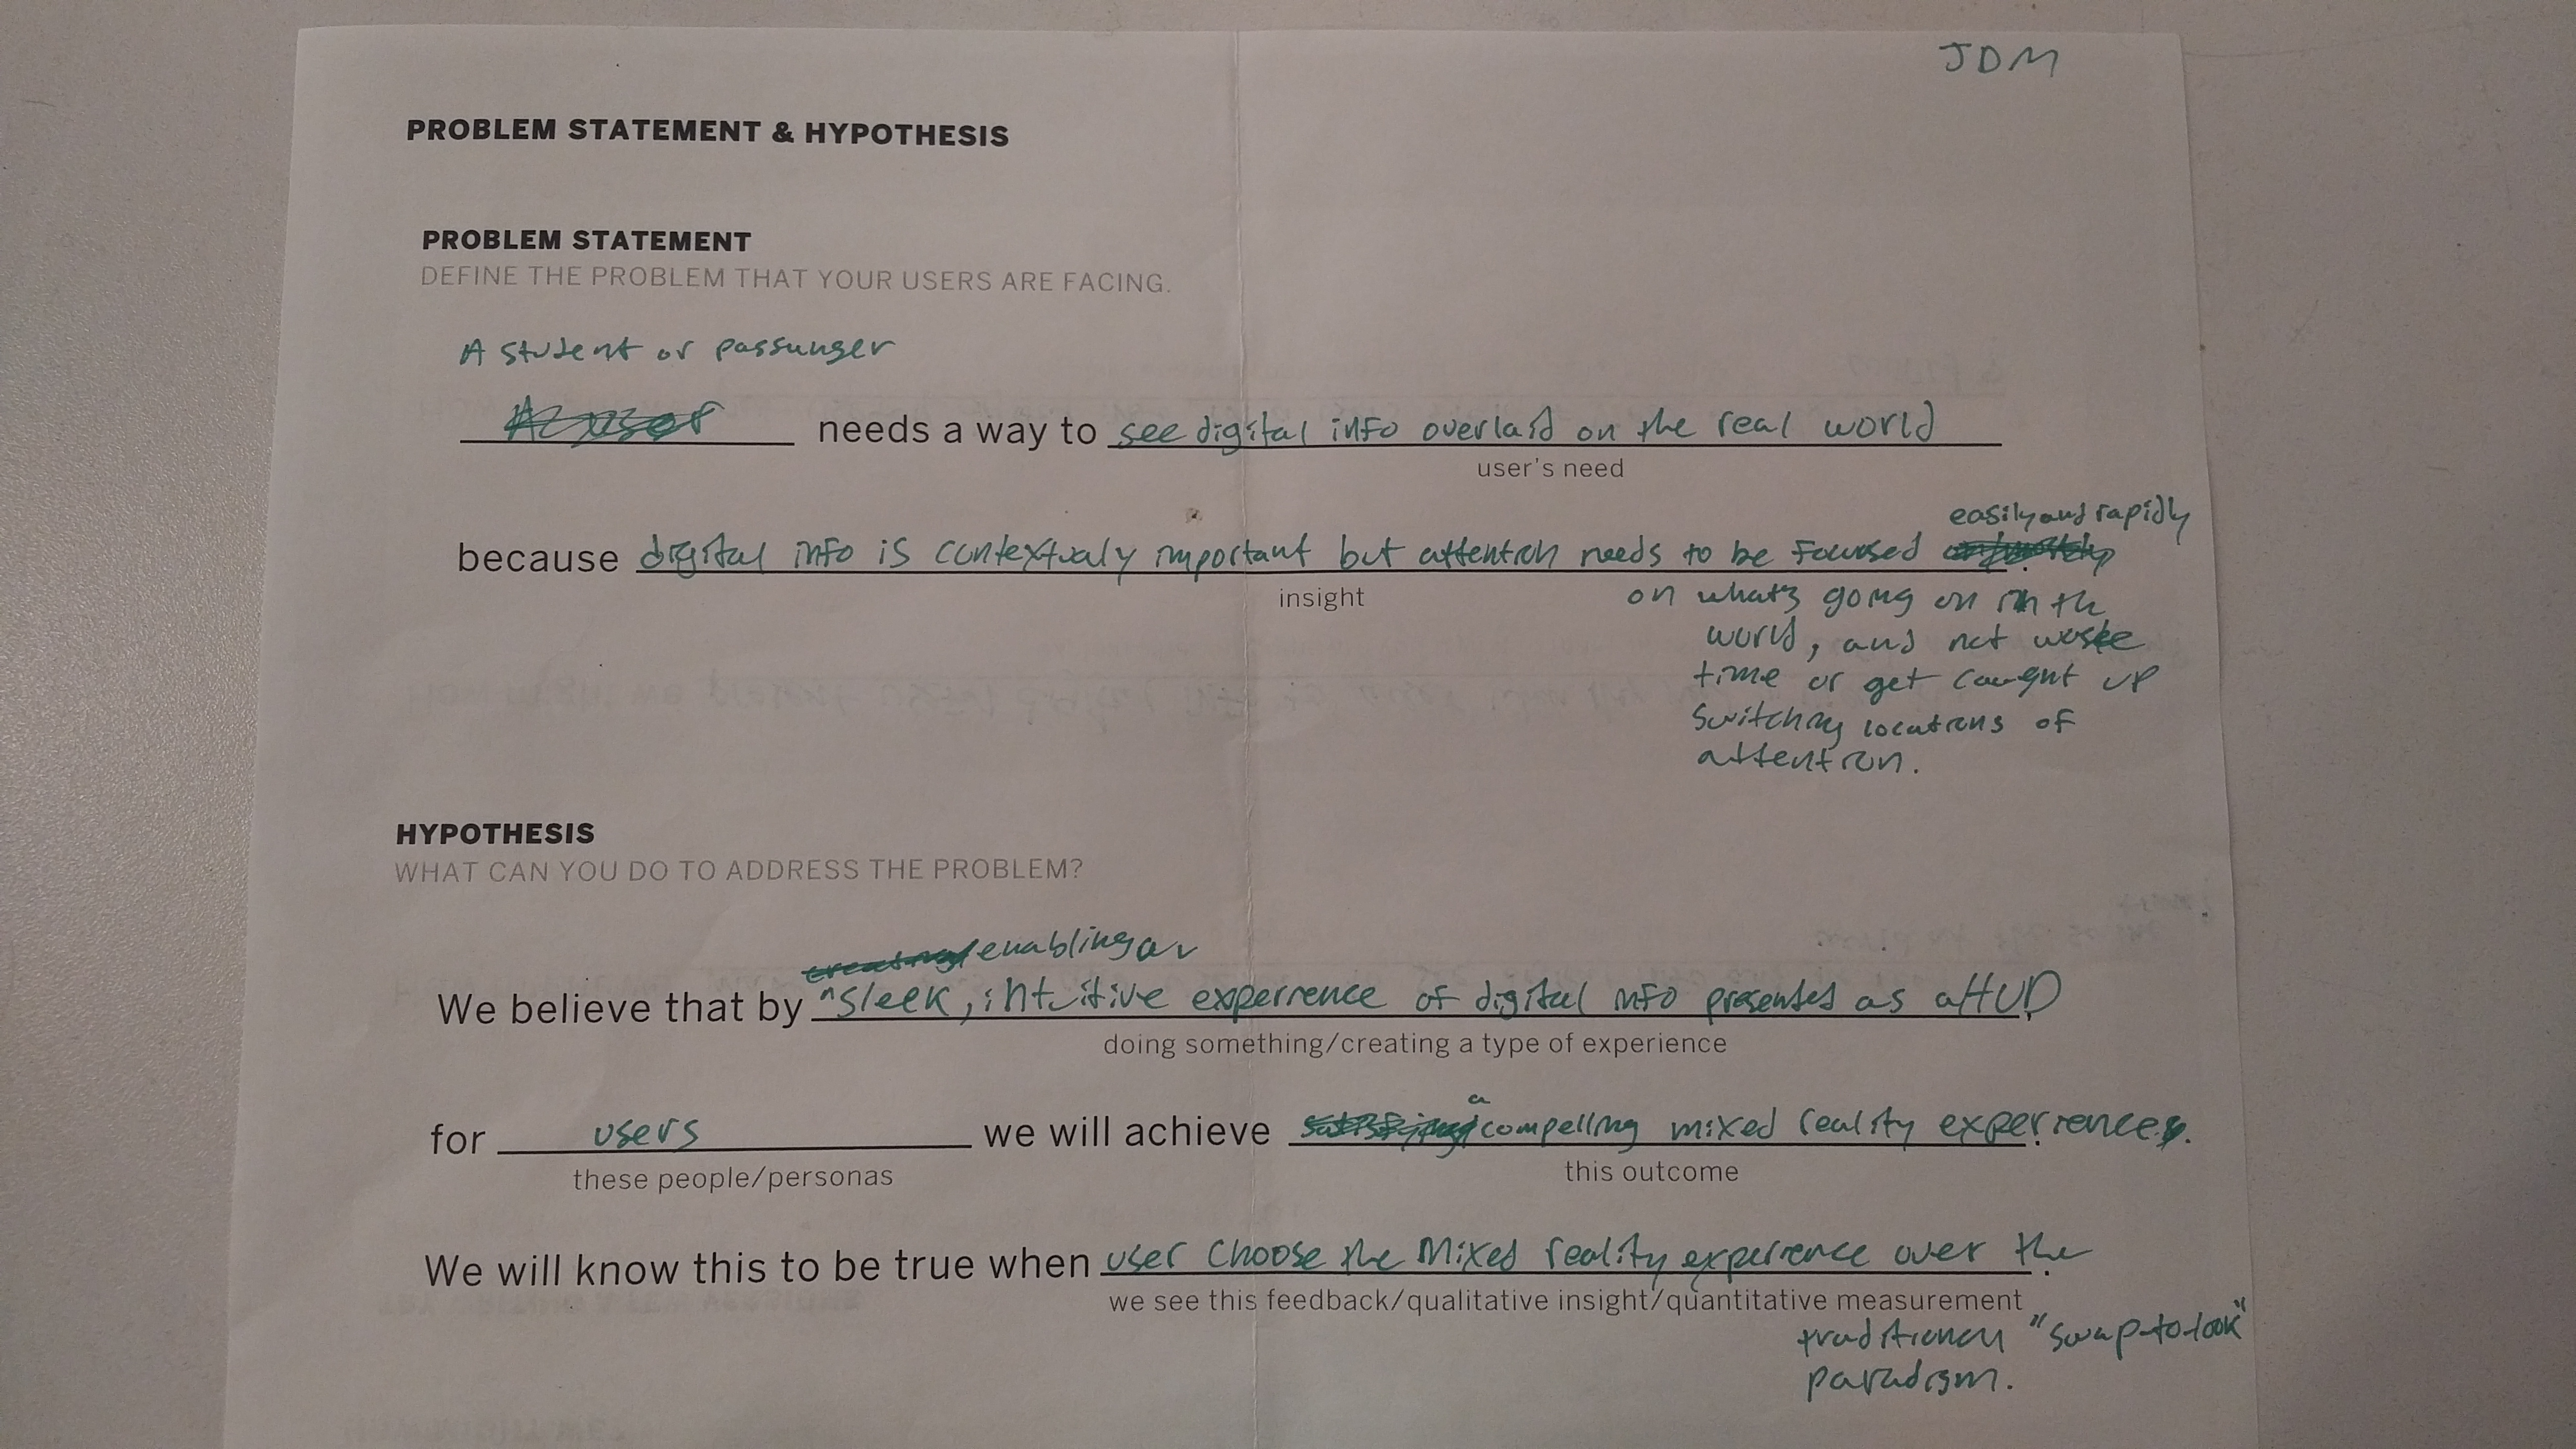 JDM
PROBLEM STATEMENT & HYPOTHESIS
PROBLEM STATEMENT
DEFINE THE PROBLEM THAT YOUR USERS ARE FACING.
A student or passunger
needs a way to see digital info overlaid on the real world
user's need
easily and rapidly
because digital info is contextualy important but attention needs to be focused
insight
on what's going on in the
world, and not waste
time or get caught up
switching locations of
attention.
HYPOTHESIS
WHAT CAN YOU DO TO ADDRESS THE PROBLEM?
enabling a
We believe that by sleek, intuitive experience of digital info presented as a HUD.
doing something/creating a type of experience
a
for users we will achieve compelling mixed reality experience.
these people/personas
this outcome
We will know this to be true when user choose the mixed reality experience over the
we see this feedback/qualitative insight/quantitative measurement
traditional "swap-to-look"
paradigm.